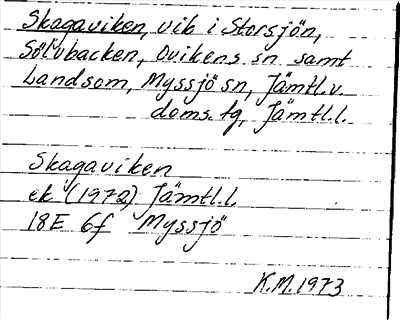 Skagaviken, vik i Storsjön,
Sölvbacken, Ovikens sn samt
Landsom, Myssjö sn, Jämtl. v.
doms. tg, Jämtl. l.
Skagaviken
ek (1972) Jämtl. l.
18E 6f Myssjö
K.M. 1973